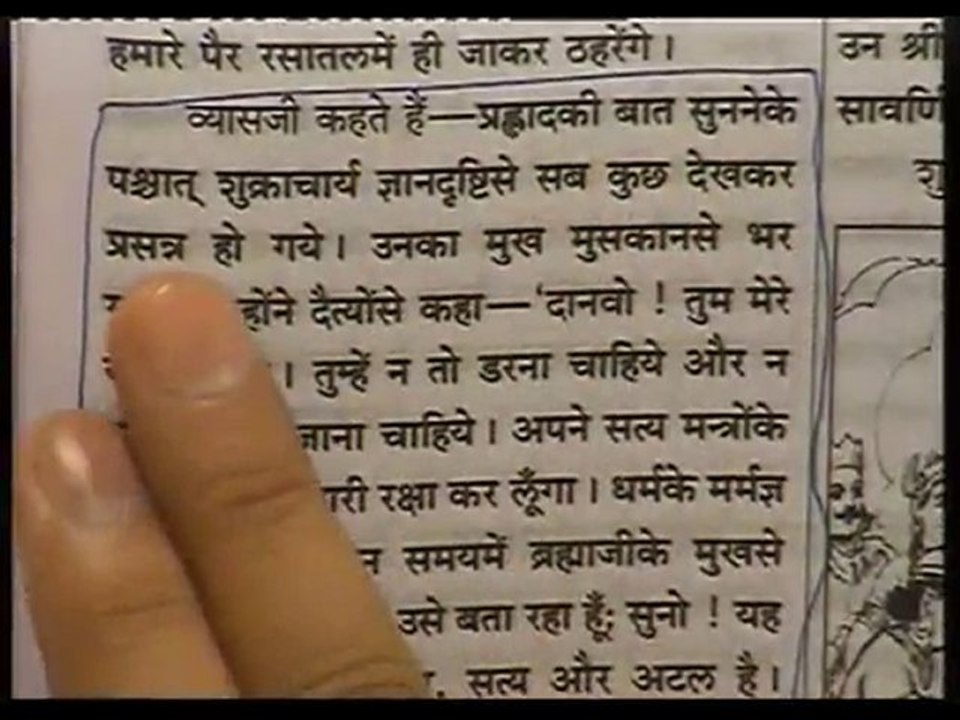 हमारे पैर रसातलमें ही जाकर ठहरेंगे।
व्यासजी कहते हैं—प्रह्लादकी बात सुननेके
पश्चात् शुक्राचार्य ज्ञानदृष्टिसे सब कुछ देखकर
प्रसन्न हो गये। उनका मुख मुसकानसे भर
होंने दैत्योंसे कहा—'दानवो ! तुम मेरे
। तुम्हें न तो डरना चाहिये और न
जाना चाहिये। अपने सत्य मन्त्रोंके
ारी रक्षा कर लूँगा। धर्मके मर्मज्ञ
न समयमें ब्रह्माजीके मुखसे
उसे बता रहा हूँ; सुनो ! यह
सत्य और अटल है।
उन श्री
सावर्णि
शु